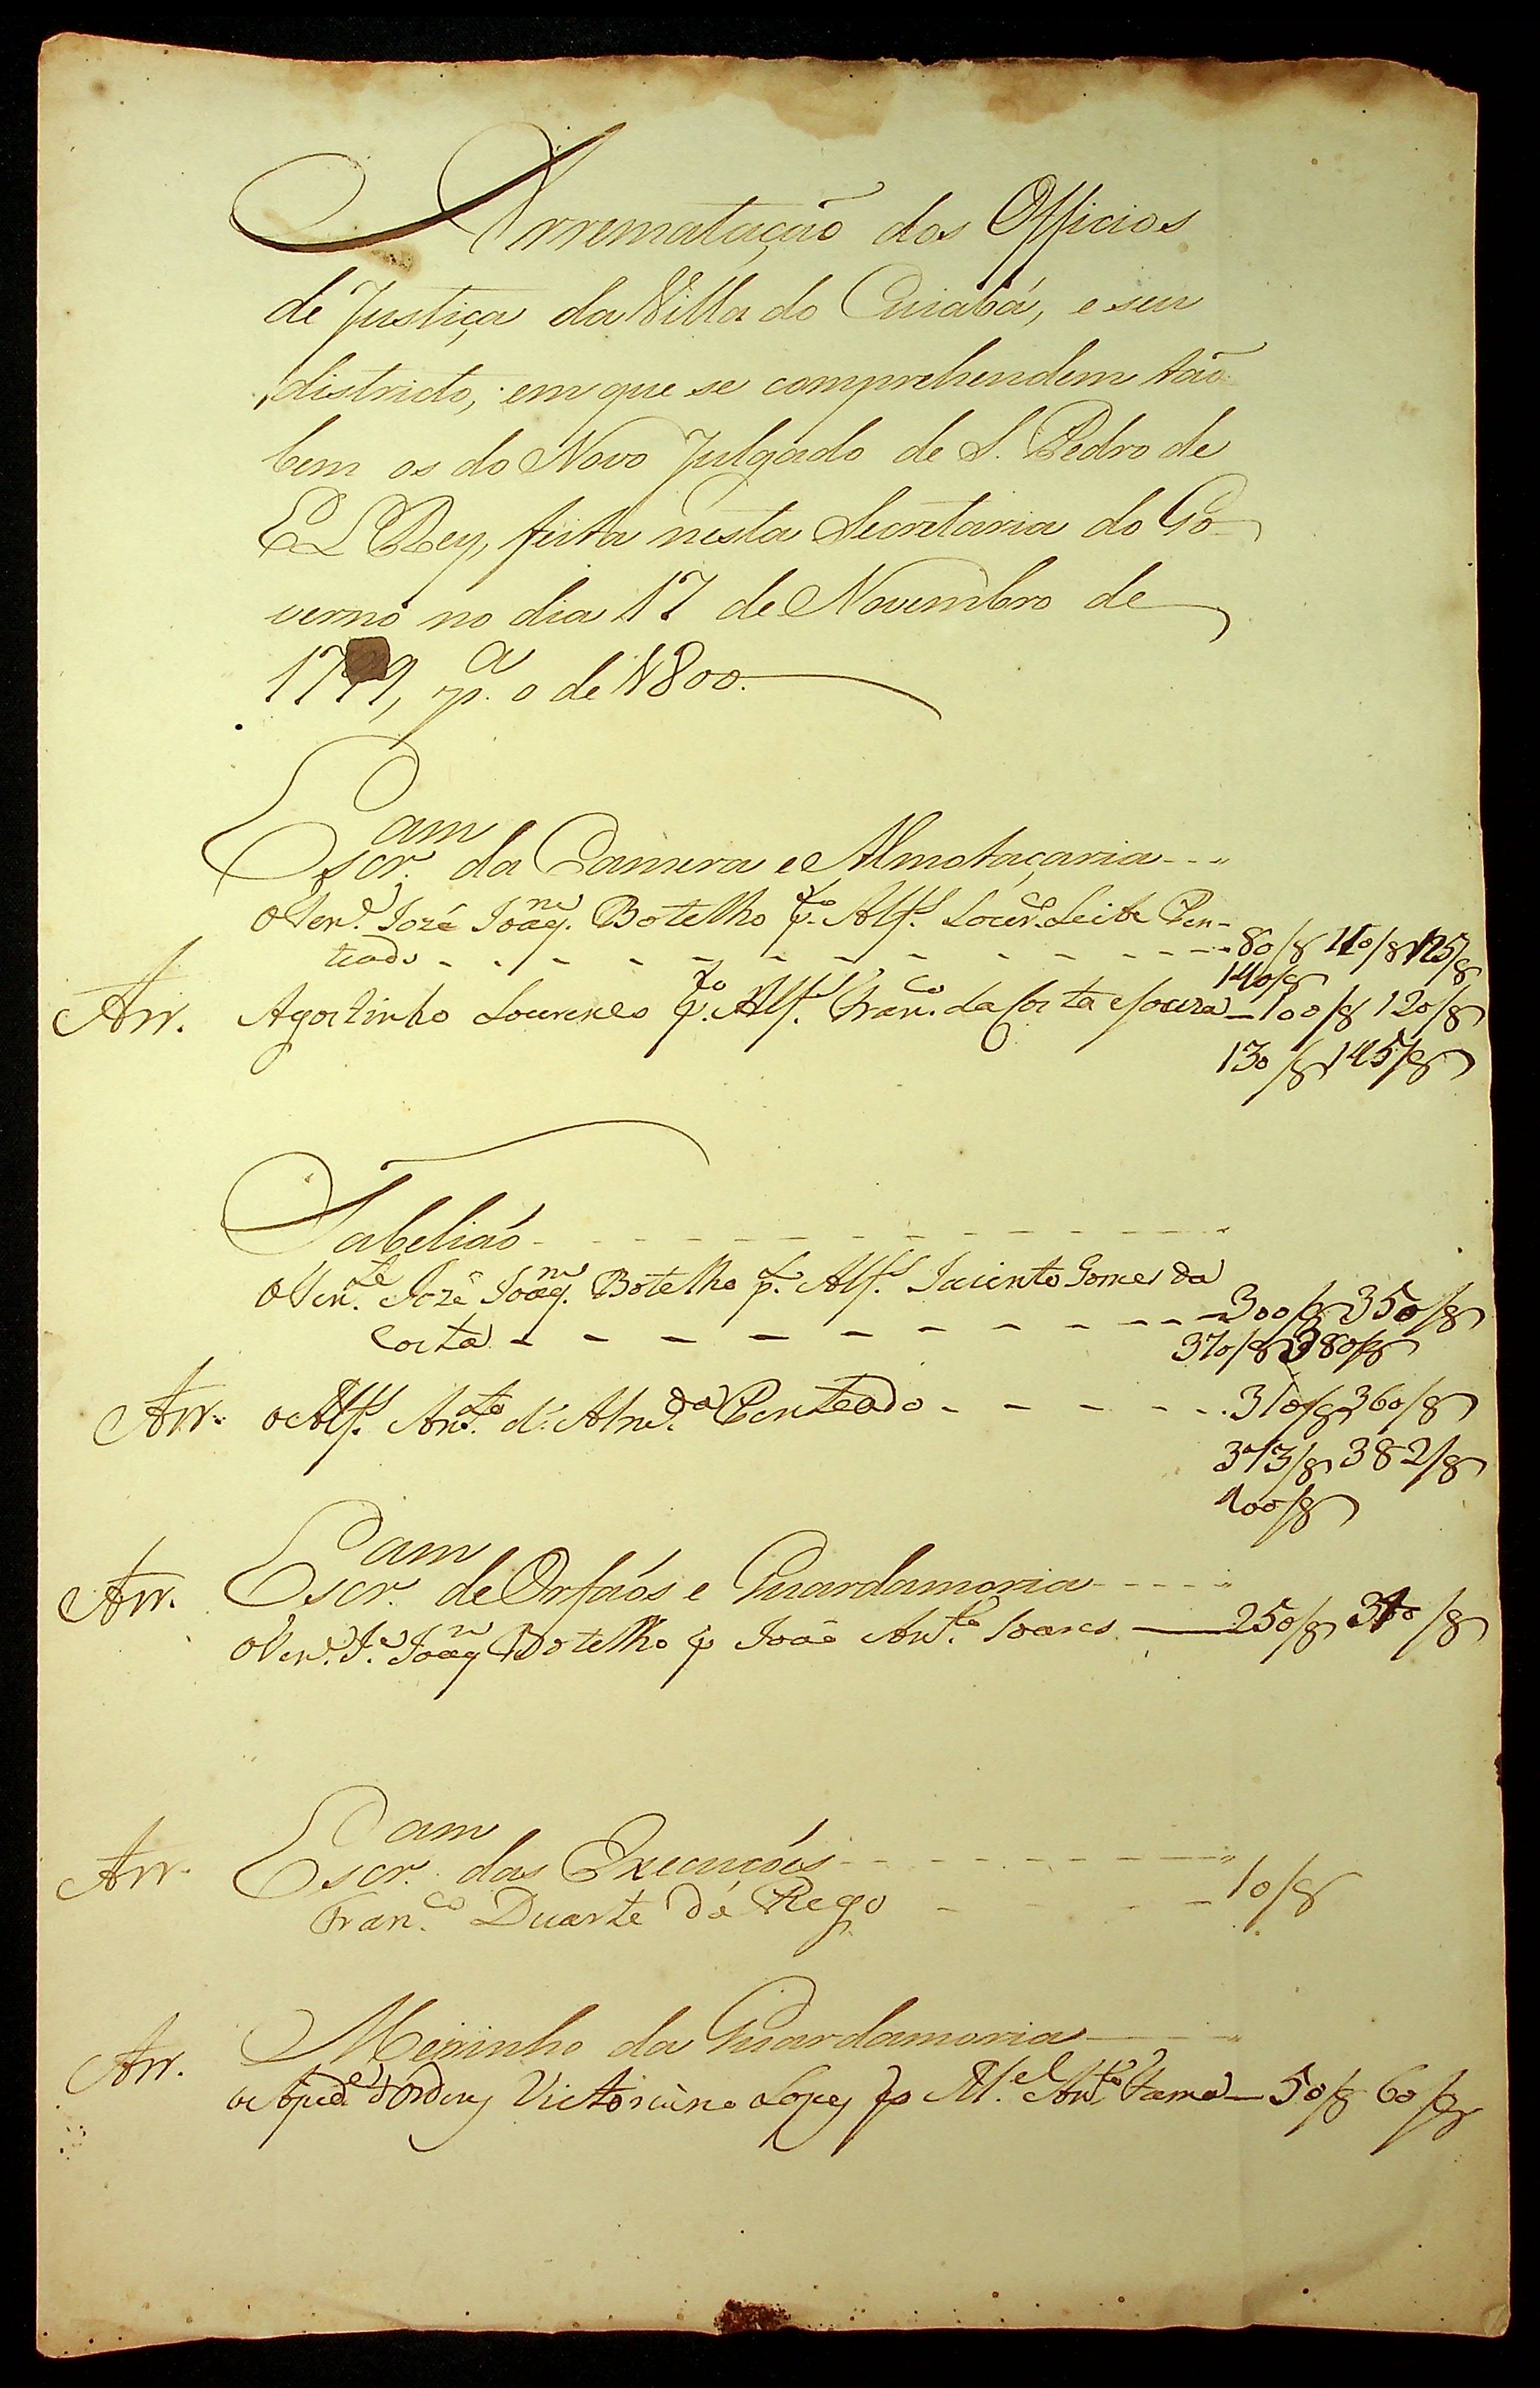 Arrematação dos Officios
de Justiça da Villa do Cuiabá, e seu
districto, em que se comprehendem tão
bem os do Novo Julgado de S. Pedro de
El Rey, feita nesta Secretaria do Go-
verno no dia 17 de Novembro de
1799, p.ª o de 1800.
Escr.am da Camera e Almotaçaria
O Ten.e Jozé Joaq.m Botelho p.lo Alf.s Lour.ço Leite Pen-
teado 80/8 110/8 125/8
140/8
Arr. Agostinho Lourenço p.lo Alf.s Fran.co da Costa e Souza 100/8 120/8
130/8 145/8
Tabelião
O Ten.te Jozé Joaq.m Botelho p.lo Alf.s Jacinto Gomes da
Costa 300/8 350/8
370/8 380/8
Arr. o Alf.s Ant.o d' Alm.da Penteado 310/8 360/8
373/8 382/8
400/8
Arr. Escr.am de Orfaõs e Guardamoria
O Ten.e J.e Joaq.m Botelho p João Ant.o Soares 250/8 /8
Arr. Escr.am das Execuções
Fran.co Duarte do Rego 10/8
Arr. Meirinho da Guardamoria
Victoriano Lopes p M.el Ant.o 50/8 60/8